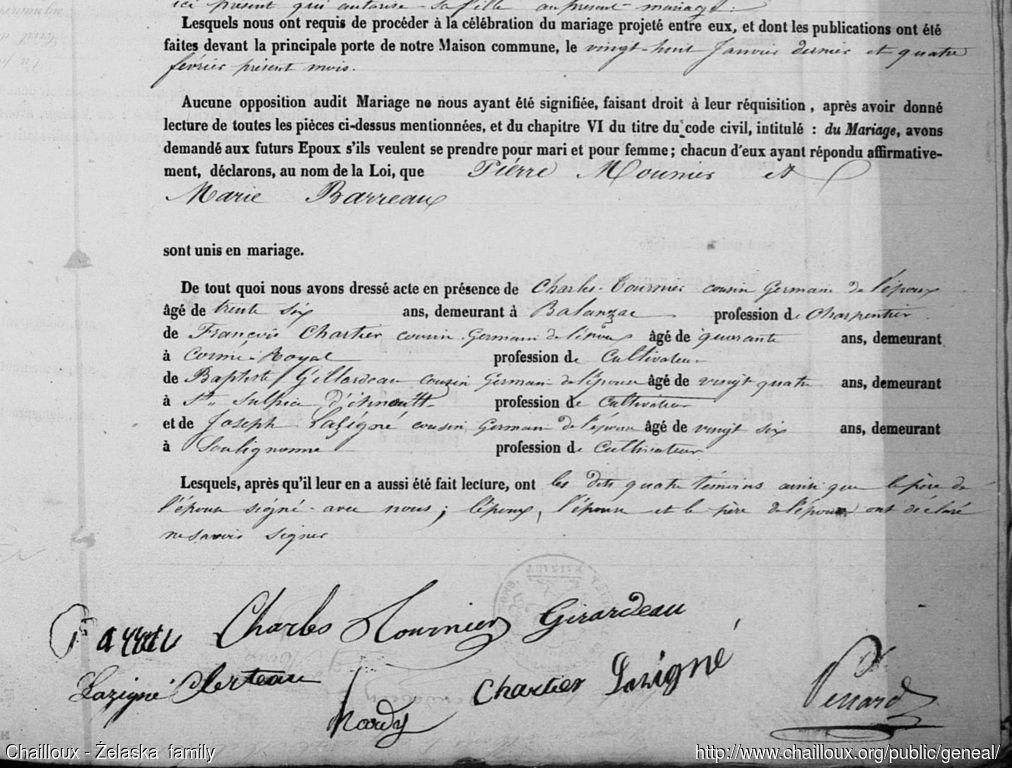 ici présent qui autorise sa fille au présent mariage.
Lesquels nous ont requis de procéder à la célébration du mariage projeté entre eux, et dont les publications ont été
faites devant la principale porte de notre Maison commune, le vingt-huit Janvier dernier et quatre
février présent mois.
Aucune opposition audit Mariage ne nous ayant été signifiée, faisant droit à leur réquisition, après avoir donné
lecture de toutes les pièces ci-dessus mentionnées, et du chapitre VI du titre du code civil, intitulé : du Mariage, avons
demandé aux futurs Epoux s'ils veulent se prendre pour mari et pour femme ; chacun d'eux ayant répondu affirmative-
ment, déclarons, au nom de la Loi, que Pierre et
Marie Barreau
sont unis en mariage.
De tout quoi nous avons dressé acte en présence de Charles Tournier cousin Germain de l'époux
âgé de trente six ans, demeurant à Balanzac profession de Charpentier
de François Chartier cousin Germain de âgé de quarante ans, demeurant
à Corme-Royal profession de Cultivateur
de Baptiste cousin Germain de l'époux âgé de vingt quatre ans, demeurant
à Ste Sulpice d'Arnoult profession de Cultivateur
et de Joseph Lazigné cousin Germain de l'époux âgé de vingt six ans, demeurant
à Soulignonne profession de Cultivateur
Lesquels, après qu'il leur en a aussi été fait lecture, ont les dits quatre témoins ainsi que le père de
l'épouse signé avec nous ; l'époux, l'épouse et le père de l'époux ont déclaré
ne savoir signer
Charles Tournier Girardeau
Lazigné
Chartier Lazigné
Hardy
Chailloux - Żelaska family
http://www.chailloux.org/public/geneal/